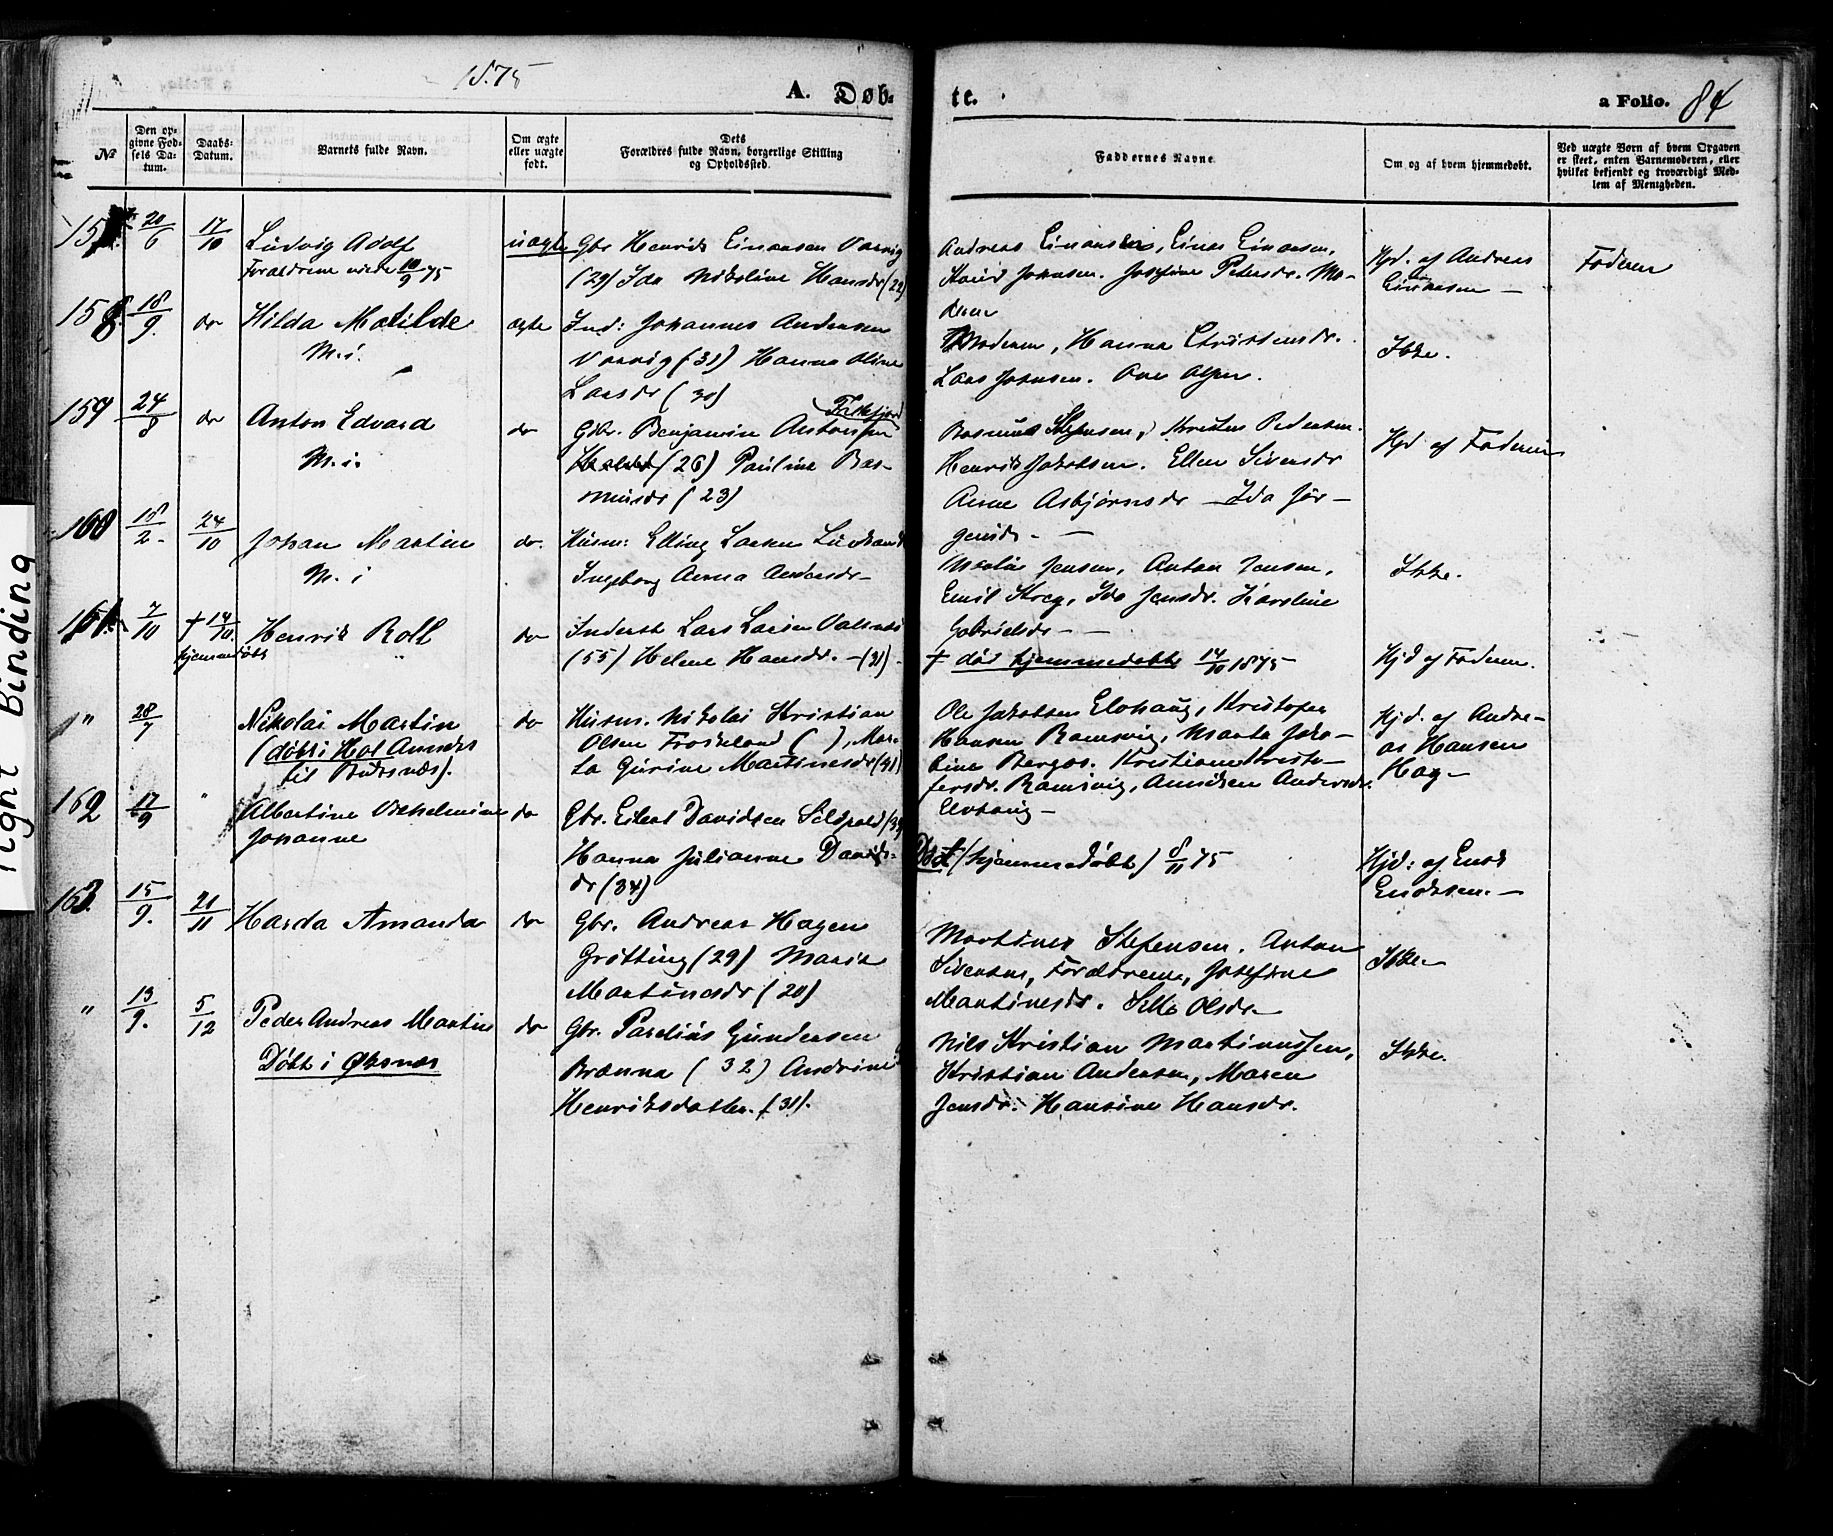 1875
A. Døb-
te.
a Folio. 84
№
Den op-
givne Fød-
sels Da-
tum.
Daabs-
Datum.
Barnets fulde Navn.
Om ægte
eller uægte
født.
Dets
Forældres fulde Navn, borgerlige Stilling
og Opholdssted.
Faddernes Navne
Om og af hvem hjemmedøbt.
Ved uægte Børn af hvem Opgaven
er skeet, enten Barnemoderen, eller
hvilket bekjendt og troværdigt Med-
lem af Menigheden.
20/6
17/10
Ludvig Adolf
Forældrene viede 10/9 75
uægte
Gbr Henrik Einarsen Vaavig
(29) Ida Nikoline Hansdr (22)
Andreas Einarsen, Einar Einarsen,
Johnsen. Josefine Petersdr. Mo-
deren
Hjd. af Andreas
Einarsen —
Faderen
158
18/9.
do
Hilda Matilde
M.i.
ægte
Ind: Johannes Andersen
Vaavig (31) Hanna Oline
Larsdr (30)
Moderen, Hanna Christensdr.
Lars Johnsen. Ove Olsen.
Ikke.
159
24/8
do
Anton Edvard
M.i.
do
Gbr. Benjamin Antonsen
(26) Pauline Ras-
musdr (23)
Rasmus Stefensen, Kristen Pedersen.
Henrik Jakobsen. Ellen Sivertsdr
Anne Asbjørnsdr — Ida Jør-
gensdr —
Hjd af Faderen
160
18/2.
24/10
Johan Martin
M. i
do.
Husm: Elling Larsen
Ingeborg Anna Andersdr —
Jensen, Anton Jensen,
Emil Krog, Ida Jensdr. Karoline
Gabrielsdr —
Ikke.
161
7/10
† 14/10.
hjemmedøbt
Henrik Roll
do
Inderst Lars Larsen Valsnæs
(55) Helene Hansdr. — (31).
† død hjemmedøbt 14/10 1875 —
Hjd af Faderen.
"
28/7
Nikolai Martin
(døbt i Hol Annex
til Buksnæs).
do
Husm. Nikolai Kristian
Olsen Froskeland ( ), Mar-
ta Gurine Martinesdr (41)
Ole Jakobsen Elvhaug, Kristofer
Hansen Ramsvig, Marta Jako-
bine Bergos. Kristiane Kristo-
fersdr. Ramsvig, Andersdr
Elvhaug —
Hjd. af Andre-
as Hansen
Hag —
162
17/9
"
Albertine Vilhelmine
Johanne
do
Gbr. Eilert Davidsen Sildpold (39
Hanna Julianne Davids-
dr (34)
Død (hjemmedøbt) 8/11 75
Hjd: af Enok
Enoksen. —
163.
15/9.
21/11
Harda Amanda
do
Gbr. Andreas Hagen
Grøtting (29) Maria
Martinesdr (20)
Martines Stefensen. Anton
Sivertsen, Forældrene, Josefine
Martinesdr. Silke Olsdr —
Ikke —
"
13/9.
5/12
Peder Andreas Martin
Døbt i Øksnæs
do
Gbr. Parelius Gundersen
Brænna (32) Andrine
Henriksdatter. (31).
Nils Kristian Martinussen,
Kristian Andersen, Maren
Jensdr. Hansine Hansdr.
Ikke.
Tight Binding